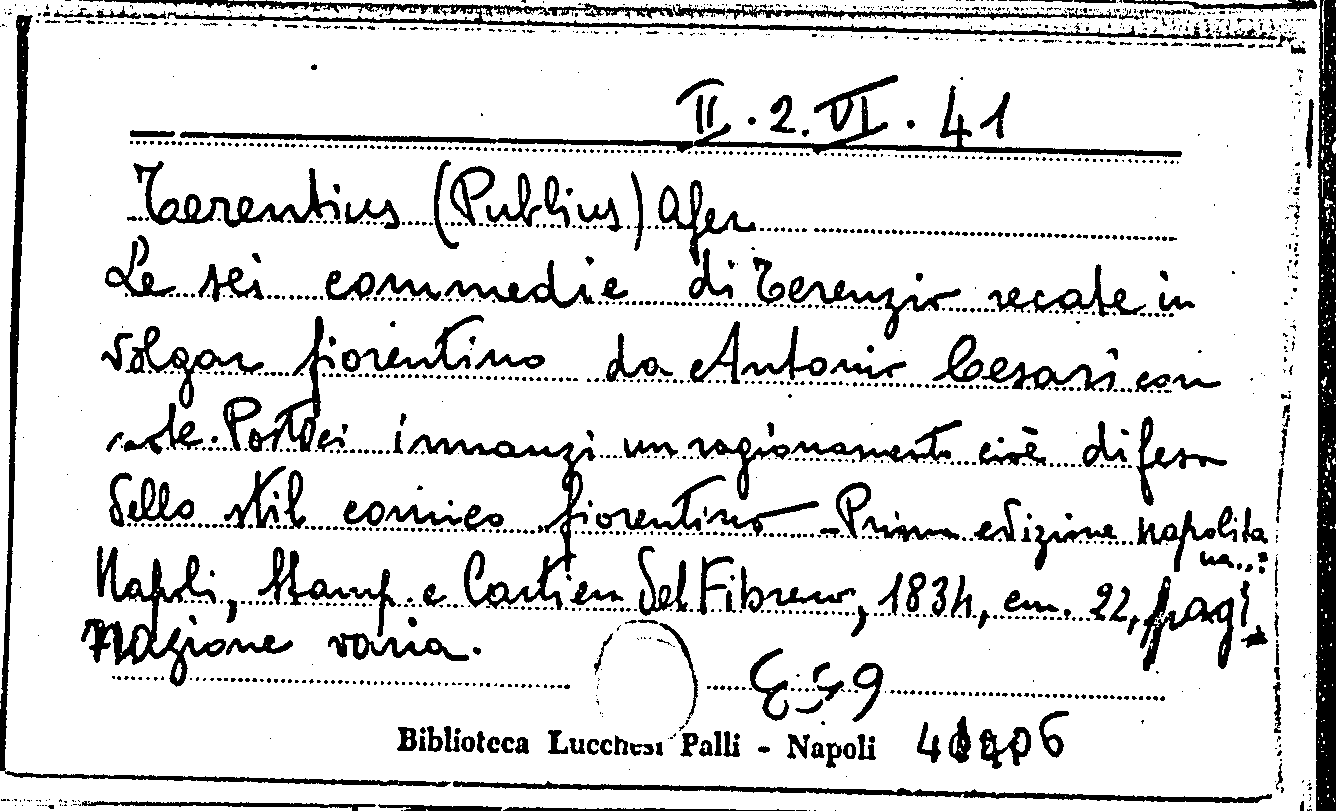 II.2.VI.41
Terentius (Publius) Afer
Le sei commedie di Terenzio recate in
volgar fiorentino da Antonio Cesari con
note. Postovi innanzi un ragionamento cioè difesa
dello stil comico fiorentino - Prima edizione napolita
na..:
Napoli, Stamp. e Cartiera del Fibreno, 1834, cm. 22, pagi
nazione varia.
Biblioteca Lucchesi Palli - Napoli